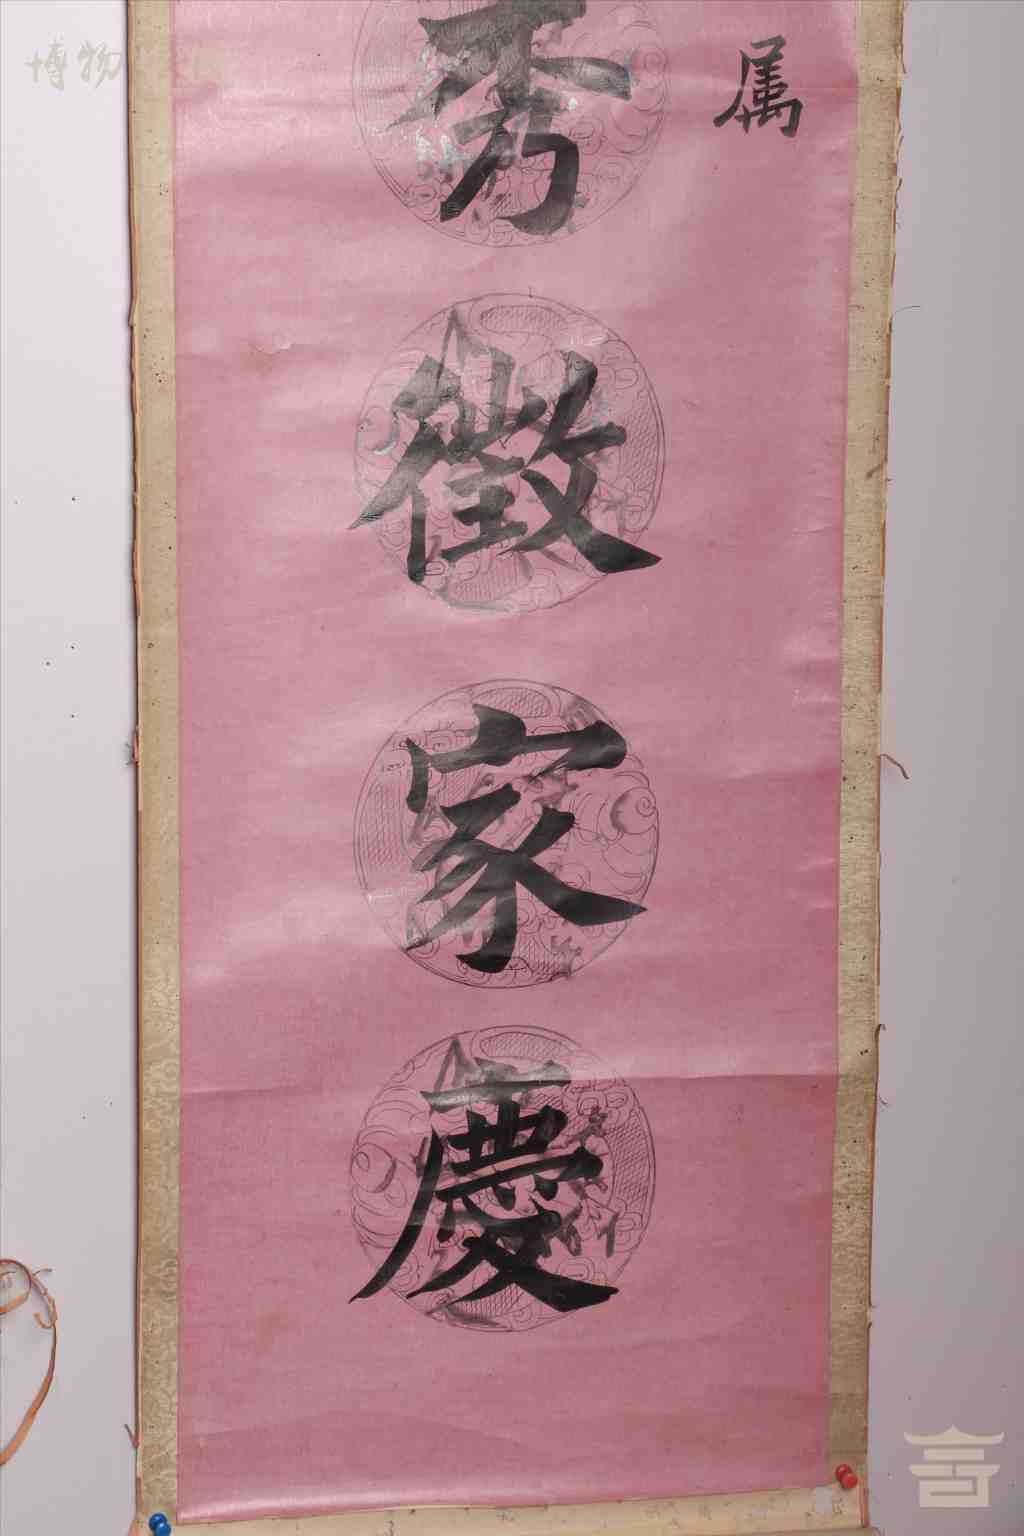 属
秀徵家慶
博物